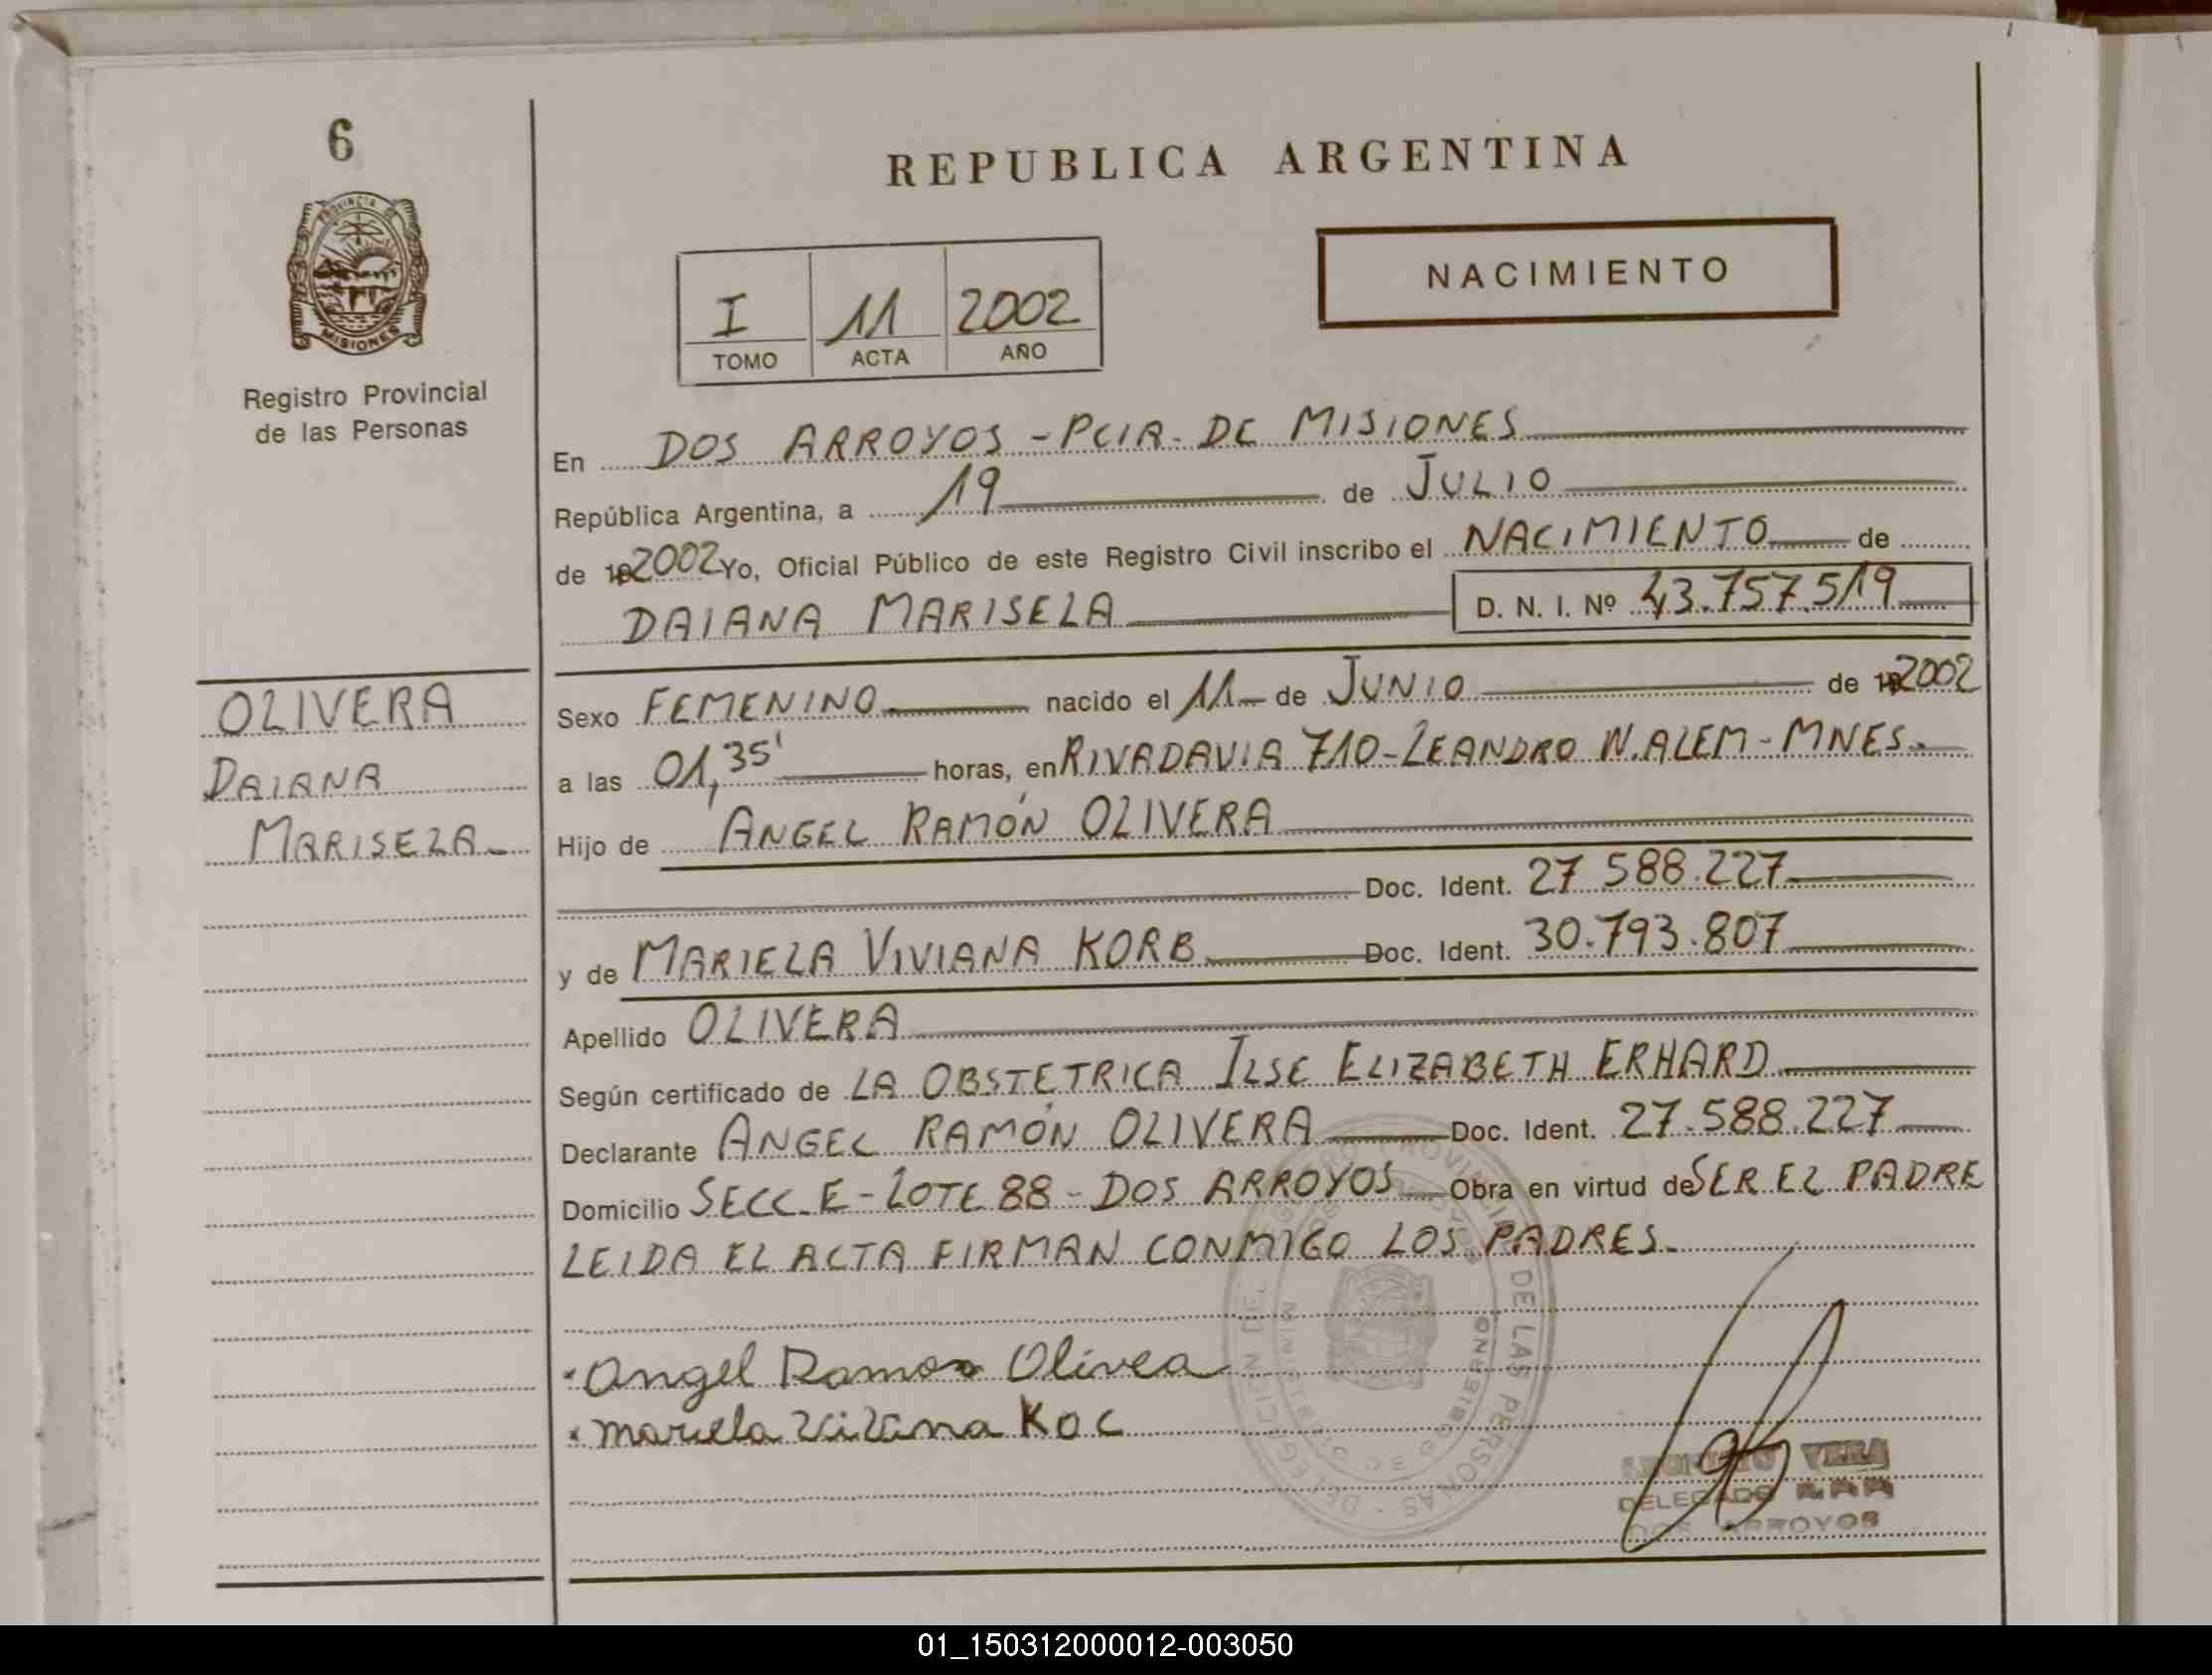 6
REPUBLICA ARGENTINA
PROVINCIA DE
MISIONES
NACIMIENTO
I 11 2002
TOMO ACTA AÑO
Registro Provincial
de las Personas
En DOS ARROYOS - PCIA. DE MISIONES
República Argentina, a 19 de JULIO
de 19 2002 Yo, Oficial Público de este Registro Civil inscribo el NACIMIENTO de
DAIANA MARISELA D. N. I. Nº 43.757.519
OLIVERA
DAIANA
MARISELA
Sexo FEMENINO nacido el 11 de JUNIO de 19 2002
a las 01,35' horas, en RIVADAVIA 710 - LEANDRO N. ALEM - MNES.
Hijo de ANGEL RAMÓN OLIVERA
Doc. Ident. 27.588.227
y de MARIELA VIVIANA KORB Doc. Ident. 30.793.807
Apellido OLIVERA
Según certificado de LA OBSTETRICA ILSE ELIZABETH ERHARD
Declarante ANGEL RAMÓN OLIVERA Doc. Ident. 27.588.227
Domicilio SECC. E - LOTE 88 - DOS ARROYOS Obra en virtud de SER EL PADRE
LEIDA EL ACTA FIRMAN CONMIGO LOS PADRES.
Angel Ramon Olivea
mariela Viviana Koc
DE LAS PERSONAS
VERA
DELEGADO
DOS ARROYOS
01_150312000012-003050